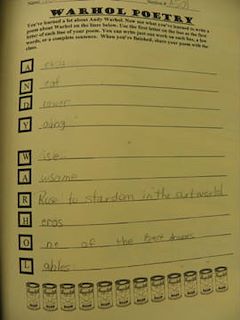 Name
WARHOL POETRY
You've learned a lot about Andy Warhol. Now use what you've learned to write a
poem about Warhol on the lines below. Use the first letter on the line as the first
letter of each line of your poem. You can write just one word on each line, a few
words, or a complete sentence. When you're finished, share your poem with the
class.
A
N eat
D
Y oung
W ise
A wsame
R Rise to stardom in the art world
H eros
O ne of the Best
L